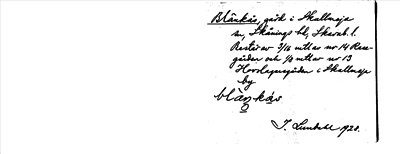 Blänkås, gård i Skallmeja
sn, Skånings hd, Skarab. l.
Består av 3/16 mtl av nr 14 Rese-
gården och 1/8 mtl av nr 13
Hovslagaregården i Skallmeja
by
blän kås
I. Lundahl 1928.